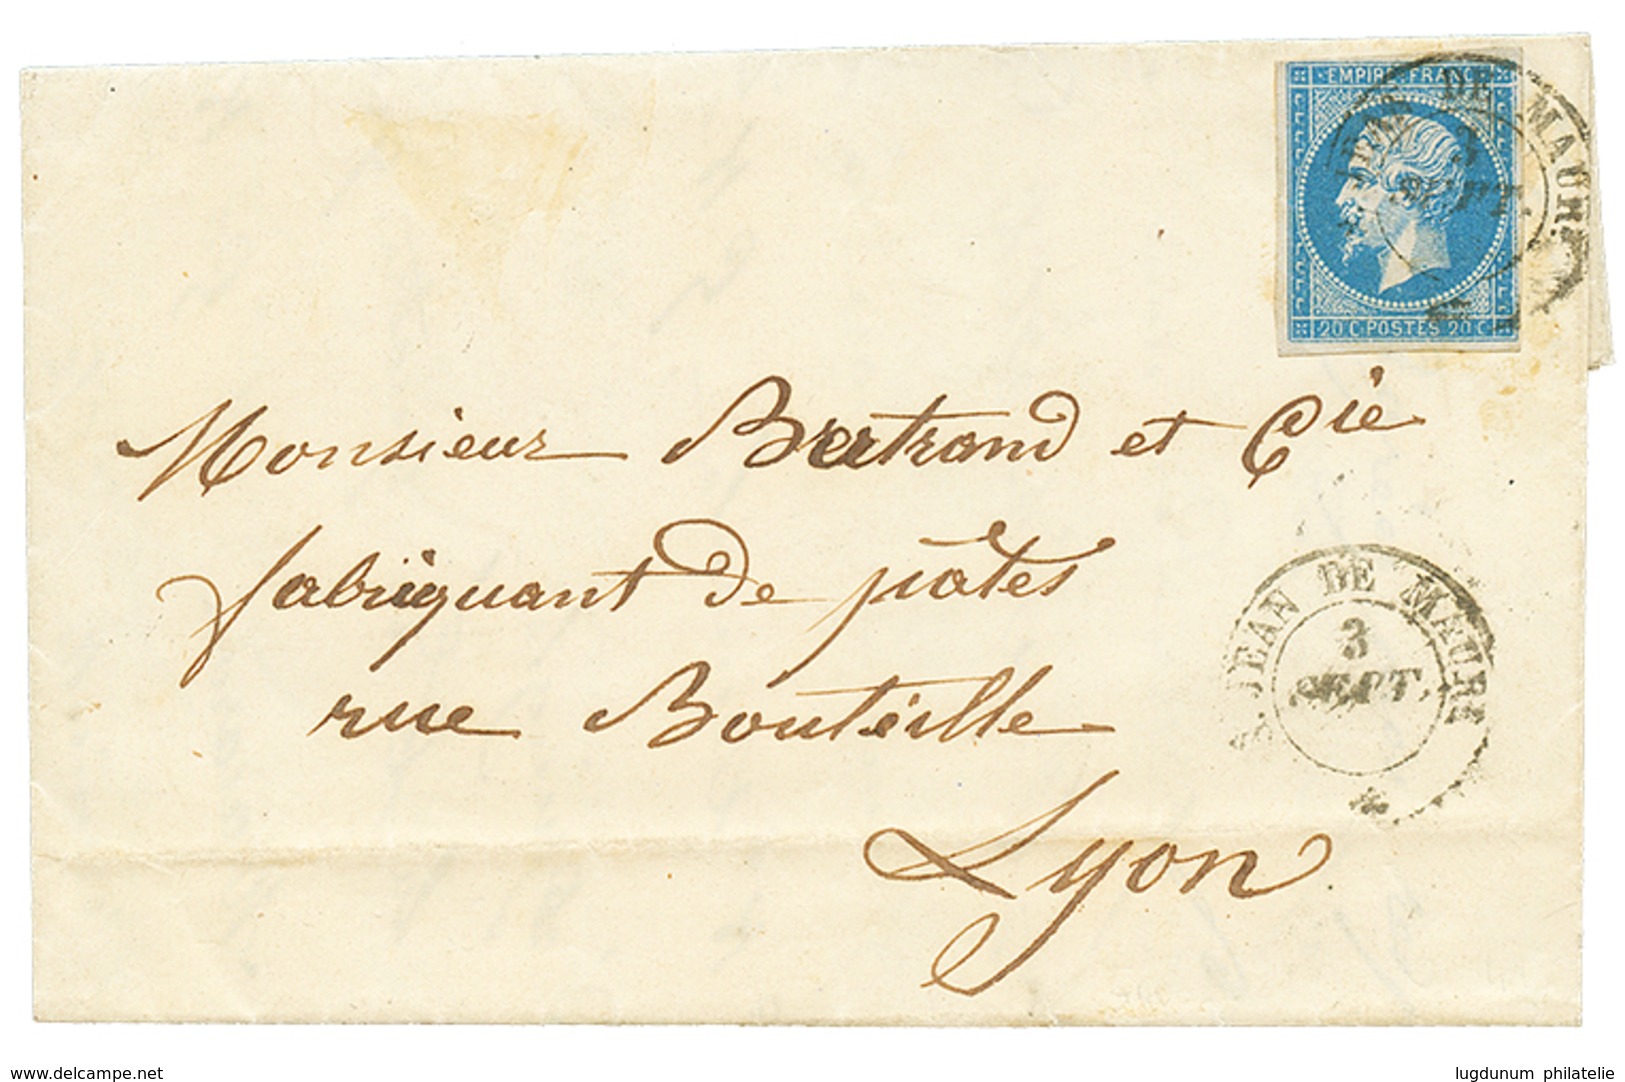 EMPIRE FRANC
DE MAUR
3
SEPT.
20 C POSTES 20 C
Monsieur Bertrand et Cie
fabriquant de pâtes
rue Bouteille
Lyon
JEAN DE MAURI
3
SEPT.
www.delcampe.net
lugdunum philatelie